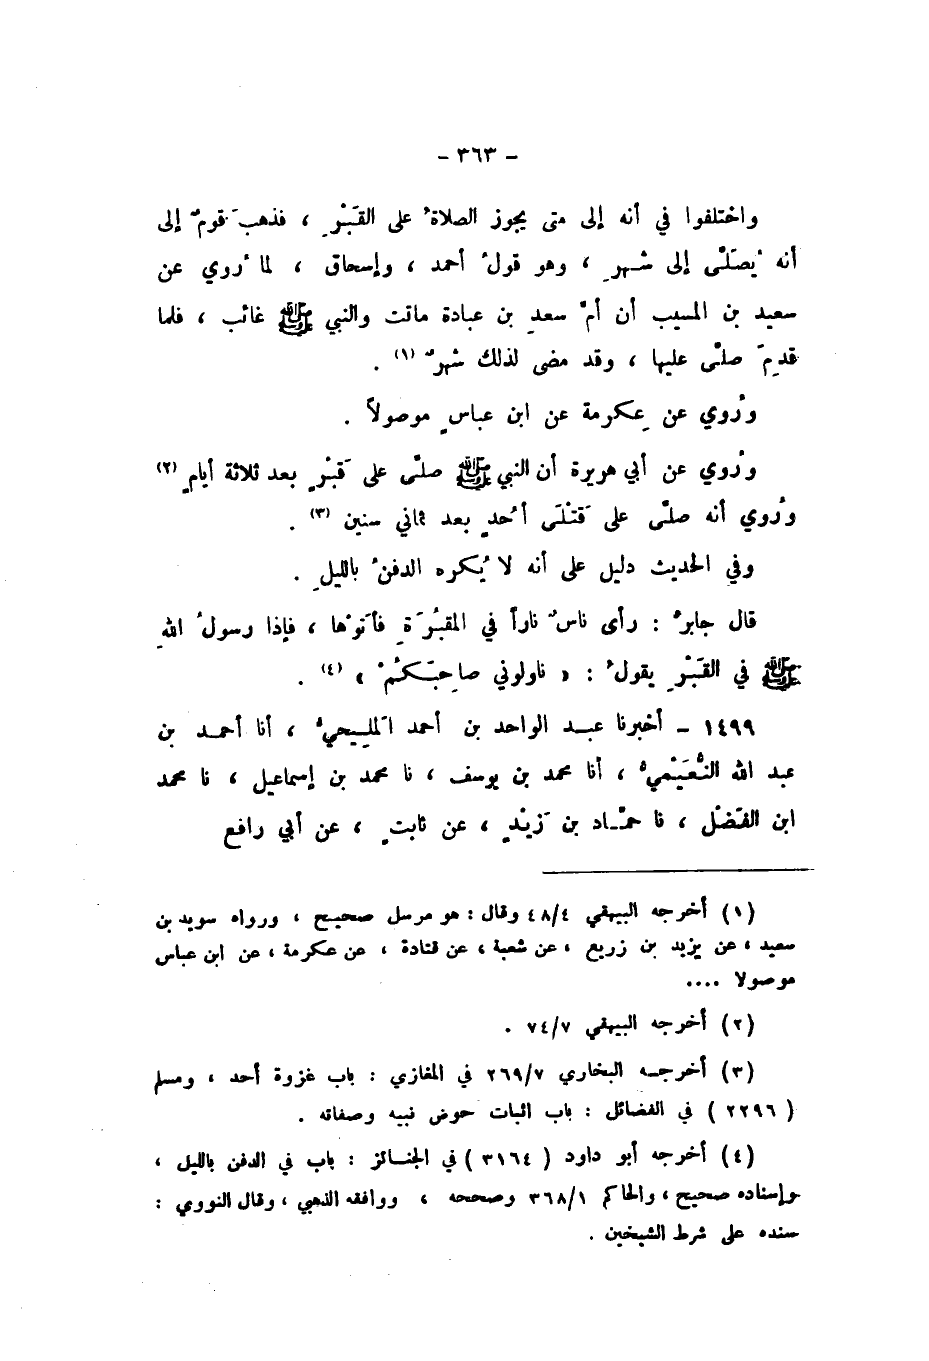 - ٣٦٣ -
واختلفوا في أنه إلى متى يجوز الصلاةُ على القَبْرِ ، فذهبَ قومٌ إلى
أنه يُصَلَّى إلى شهرٍ ، وهو قولُ أحمد ، وإسحاق ، لما رُوي عن
سعيد بن المسيب أن أمَّ سعدِ بن عبادة ماتت والنبي ﷺ غائب ، فلما
قدِمَ صلَّى عليها ، وقد مضى لذلك شهرٌ (١) .
ورُوي عن عِكرمة عن ابن عباسٍ موصولاً .
ورُوي عن أبي هريرة أن النبي ﷺ صلَّى على قَبْرٍ بعد ثلاثة أيامٍ (٢)
ورُوي أنه صلَّى على قَتْلَى أُحُدٍ بعد ثماني سنين (٣) .
وفي الحديث دليل على أنه لا يُكره الدفنُ بالليلِ .
قال جابرٌ : رأى ناسٌ ناراً في المقبُرَةِ فأتَوْها ، فإذا رسولُ اللهِ
ﷺ في القَبْرِ يقولُ : « ناولوني صاحِبَكُمْ » (٤) .
١٤٩٩ - أخبرنا عبد الواحد بن أحمد المَلِيحيُّ ، أنا أحمد بن
عبد الله النُّعَيْميُّ ، أنا محمد بن يوسف ، نا محمد بن إسماعيل ، نا محمد
ابن الفَضْل ، نا حمَّاد بن زَيْدٍ ، عن ثابتٍ ، عن أبي رافع
(١) أخرجه البيهقي ٤٨/٤ وقال : هو مرسل صحيح ، ورواه سويد بن
سعيد ، عن يزيد بن زريع ، عن شعبة ، عن قتادة ، عن عكرمة ، عن ابن عباس
موصولا ....
(٢) أخرجه البيهقي ٧٤/٧ .
(٣) أخرجه البخاري ٢٦٩/٧ في المغازي : باب غزوة أحد ، ومسلم
( ٢٢٩٦ ) في الفضائل : باب اثبات حوض نبيه وصفاته .
(٤) أخرجه أبو داود ( ٣١٦٤ ) في الجنائز : باب في الدفن بالليل ،
وإسناده صحيح ، والحاكم ٣٦٨/١ وصححه ، ووافقه الذهبي ، وقال النووي :
سنده على شرط الشيخين .